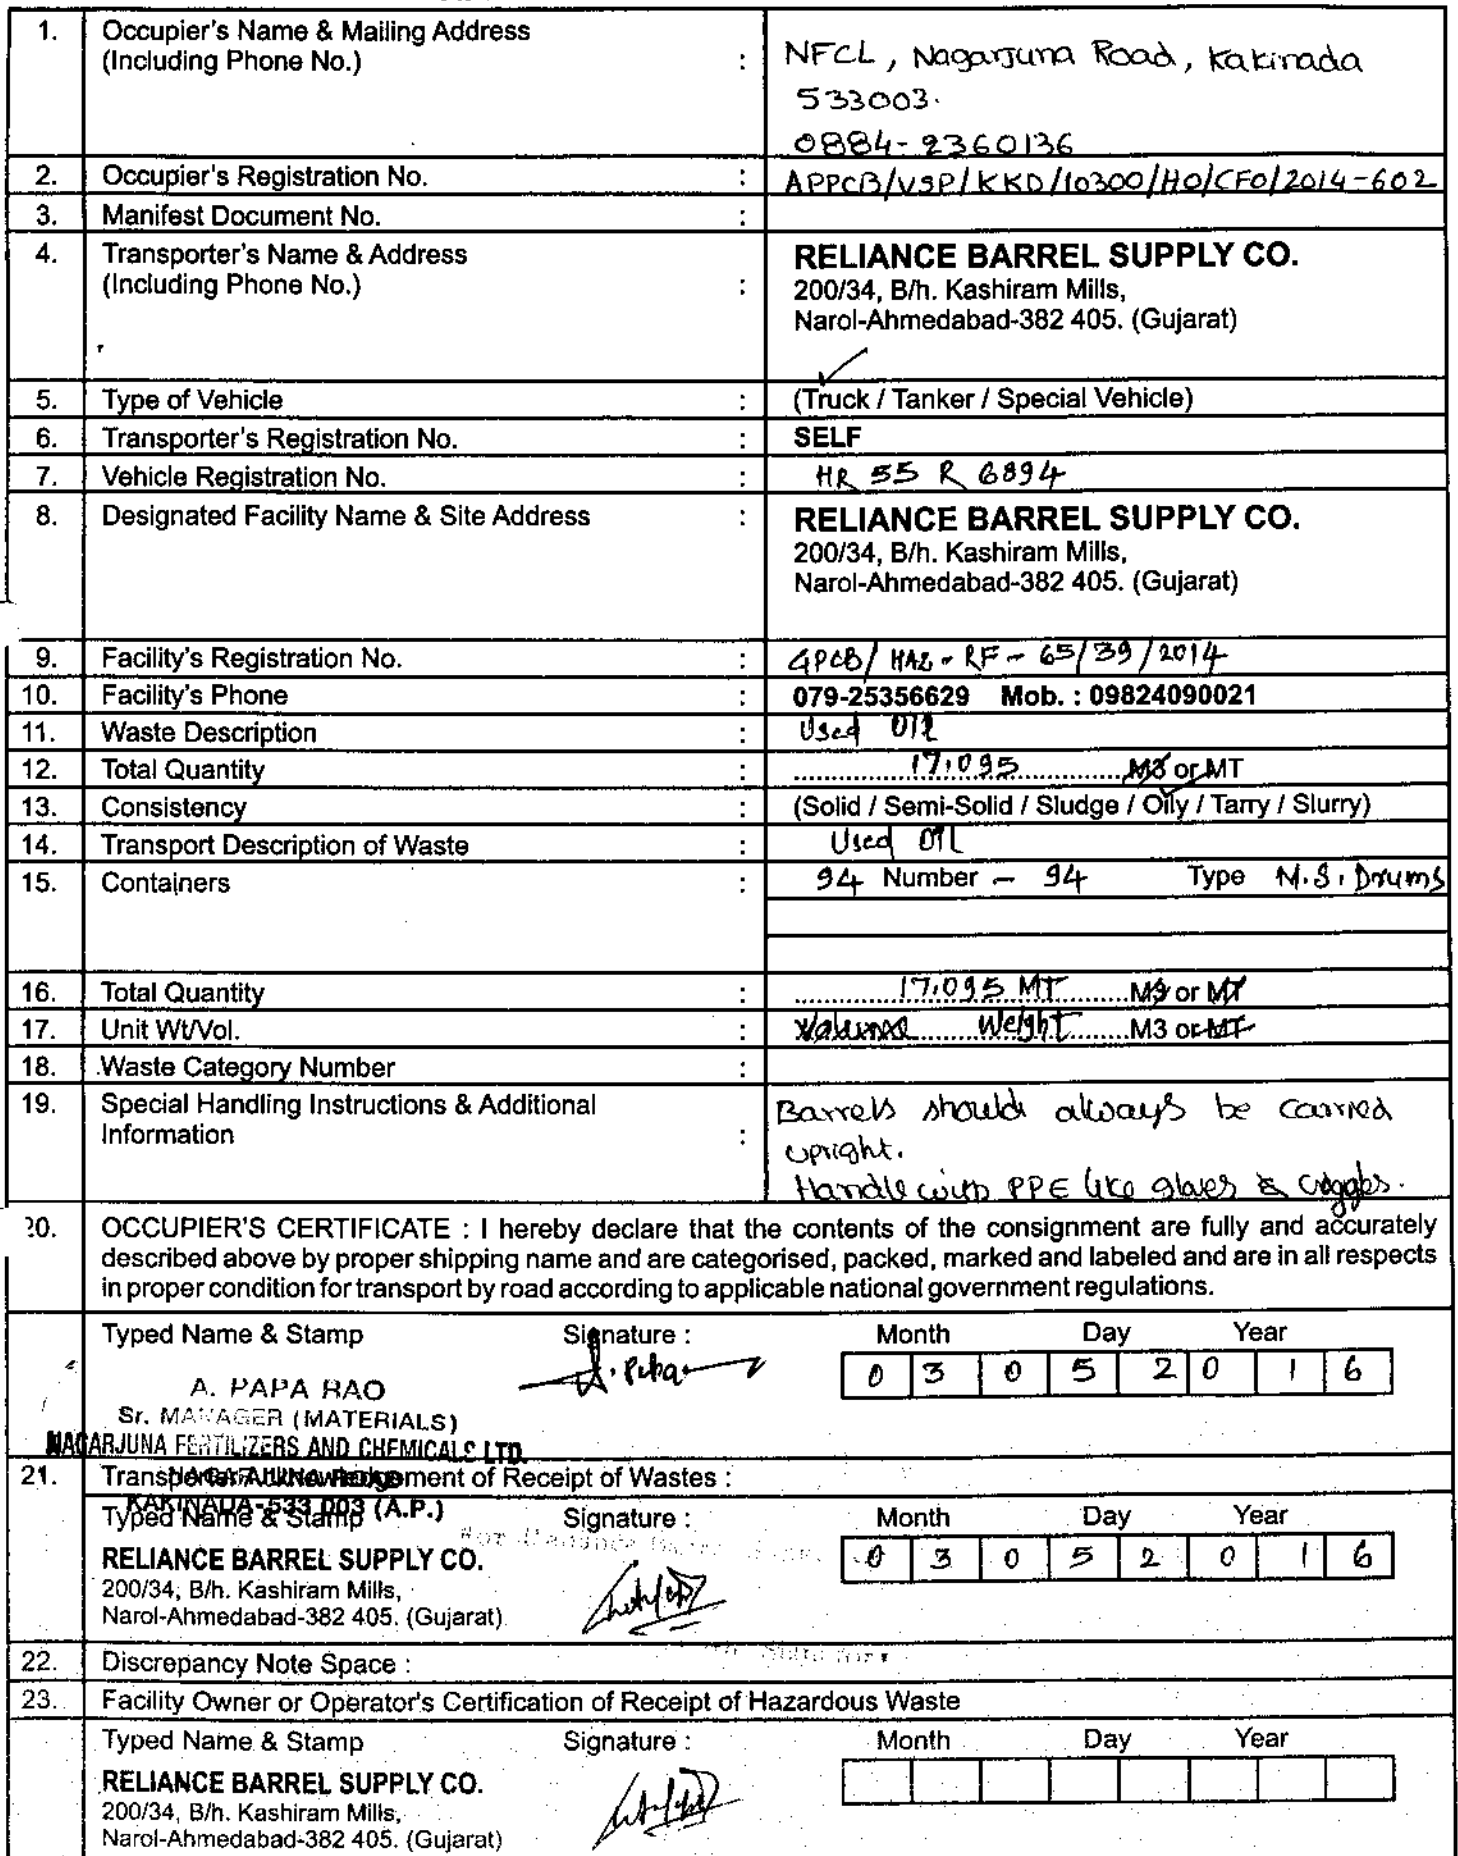 1. Occupier's Name & Mailing Address
(Including Phone No.) : NFCL, Nagarjuna Road, Kakinada
533003.
0884-2360136
2. Occupier's Registration No. : APPCB/VSP/KKD/10300/HO/CFO/2014-602
3. Manifest Document No. :
4. Transporter's Name & Address
(Including Phone No.) : RELIANCE BARREL SUPPLY CO.
200/34, B/h. Kashiram Mills,
Narol-Ahmedabad-382 405. (Gujarat)
5. Type of Vehicle : (Truck / Tanker / Special Vehicle)
6. Transporter's Registration No. : SELF
7. Vehicle Registration No. : HR 55 R 6894
8. Designated Facility Name & Site Address : RELIANCE BARREL SUPPLY CO.
200/34, B/h. Kashiram Mills,
Narol-Ahmedabad-382 405. (Gujarat)
9. Facility's Registration No. : GPCB/HAZ-RF-65/39/2014
10. Facility's Phone : 079-25356629 Mob. : 09824090021
11. Waste Description : Used Oil
12. Total Quantity : 17.095 M3 or MT
13. Consistency : (Solid / Semi-Solid / Sludge / Oily / Tarry / Slurry)
14. Transport Description of Waste : Used Oil
15. Containers : 94 Number - 94 Type M.S. Drums
16. Total Quantity : 17.095 MT M3 or MT
17. Unit Wt/Vol. : Volume Weight M3 or MT
18. Waste Category Number :
19. Special Handling Instructions & Additional
Information : Barrels should always be carried
upright.
Handle with PPE like gloves & goggles.
20. OCCUPIER'S CERTIFICATE : I hereby declare that the contents of the consignment are fully and accurately
described above by proper shipping name and are categorised, packed, marked and labeled and are in all respects
in proper condition for transport by road according to applicable national government regulations.
Typed Name & Stamp Signature : Month Day Year
0 3 0 5 2 0 1 6
A. PAPA RAO
Sr. MANAGER (MATERIALS)
NAGARJUNA FERTILIZERS AND CHEMICALS LTD.
NAGARJUNA ROAD
21. Transporter Acknowledgement of Receipt of Wastes :
KAKINADA-533 003 (A.P.)
Typed Name & Stamp Signature : Month Day Year
0 3 0 5 2 0 1 6
RELIANCE BARREL SUPPLY CO.
200/34, B/h. Kashiram Mills,
Narol-Ahmedabad-382 405. (Gujarat)
22. Discrepancy Note Space :
23. Facility Owner or Operator's Certification of Receipt of Hazardous Waste
Typed Name & Stamp Signature : Month Day Year
RELIANCE BARREL SUPPLY CO.
200/34, B/h. Kashiram Mills,
Narol-Ahmedabad-382 405. (Gujarat)